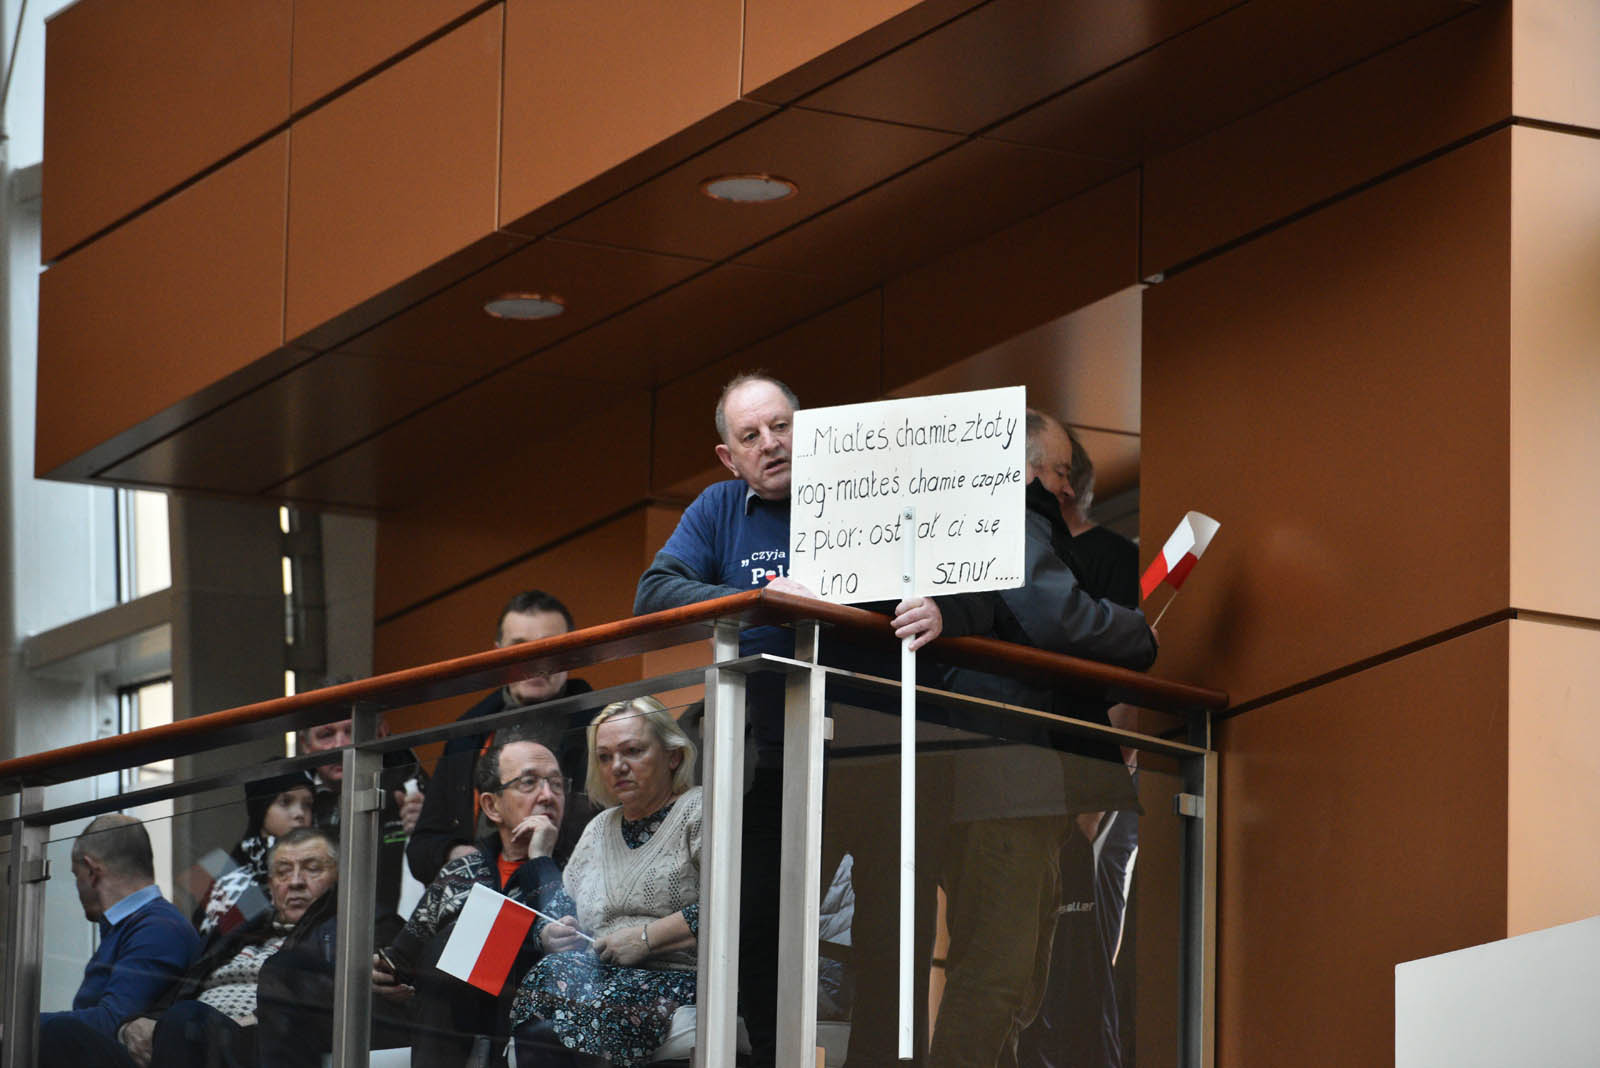 .....Miałeś, chamie, złoty
róg-miałeś, chamie czapkę
z piór: ostał ci się
ino sznur.....
„czyja
Pols